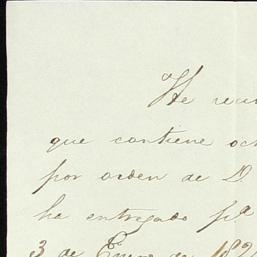 He reci
que contiene oc
por orden de D.
ha entregado pª
3 de Enero de 182